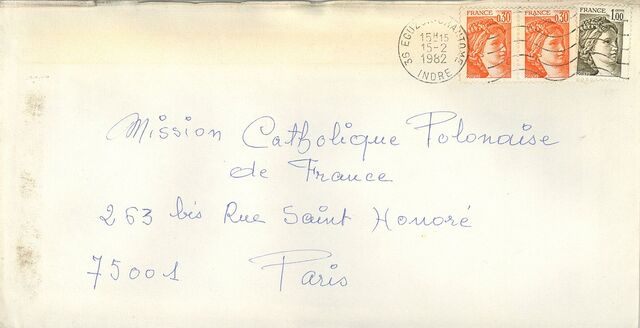 FRANCE 0.30
FRANCE 0.30
FRANCE 1.00
36 EGUZON-CHANTOME
15H15
15-2
1982
INDRE
Mission Catholique Polonaise
de France
263 bis Rue Saint Honoré
75001 Paris